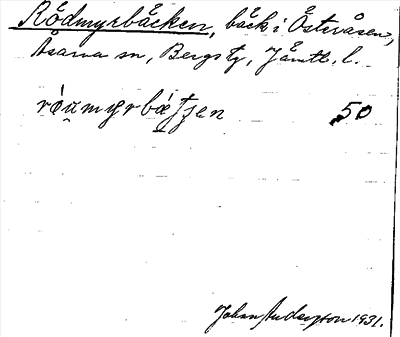 Rödmyrbäcken, bäck i Österåsen,
Åsarna sn, Bergs tg, Jämtl. l.
50
Johan Anderzon 1931.